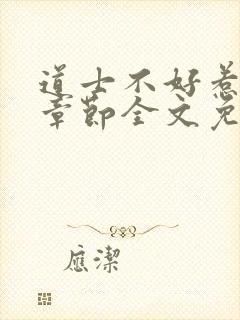 道士不好惹
章節全文免
應潔